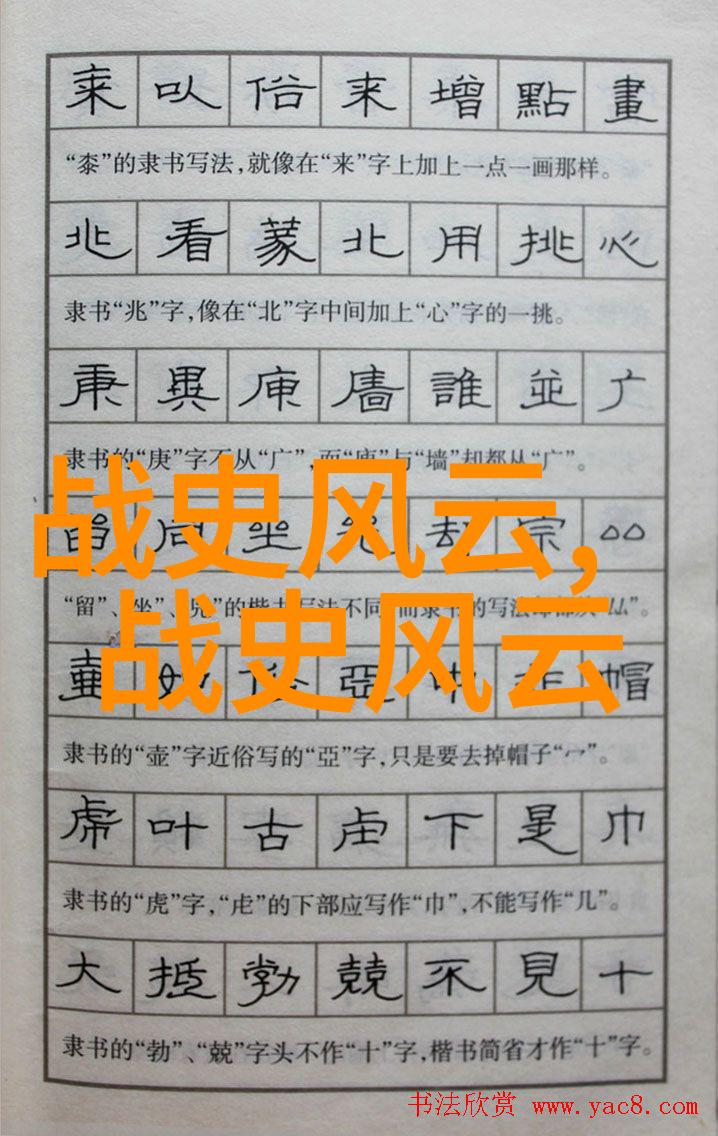 桼 以 俗 来 增 點 畫
“桼”的隶书写法,就像在“来”字上加上一点一画那样。
兆 看 蒙 北 用 挑 心
隶书“兆”字,像在“北”字中间加上“心”字的一挑。
庚 異 庾 廧 誰 並 广
隶书的“庚”字不从“广”,而“庾”与“墙”却都从“广”。
战史风云,
留 同 坐 却 宗
“留”、“坐”、的楷书写法不同,而隶书的写法却都从
战史风云
亞 帽
隶书的“壶”字近俗写的“亞”字,只是要去掉帽子“宀”。
虎 叶 古 虍 下 是 巾
隶书的“虎”字,“虍”的下部应写作“巾”,不能写作“几”。
大 抵 勃 兢 不 見 十
隶书的“勃”、“兢”字头不作“十”字,楷书简省才作“十”字。
书法欣赏 www.yac8.com